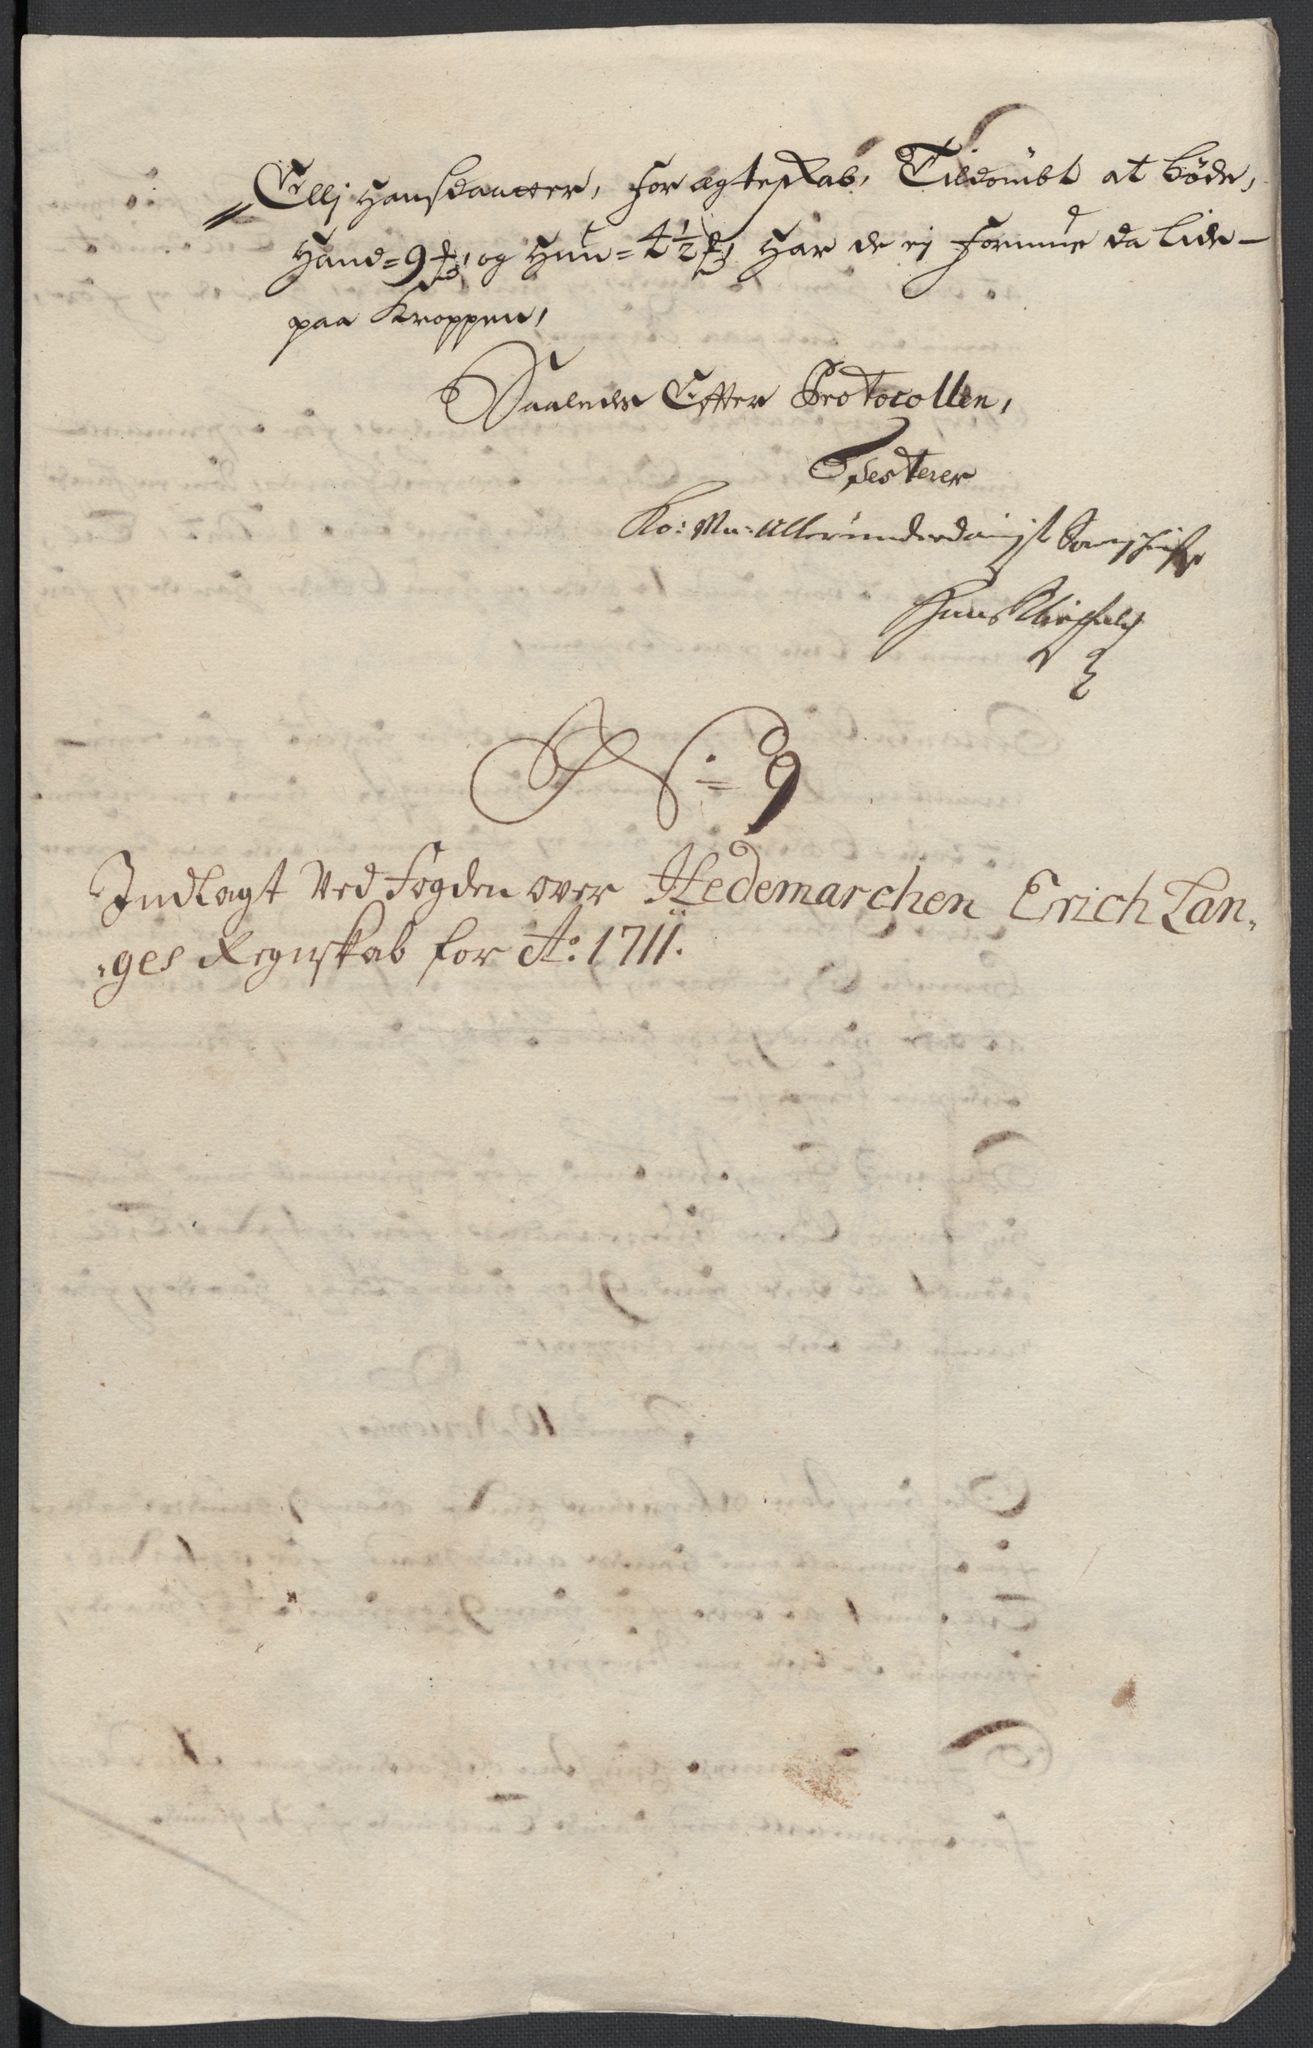 Ellj Hansdaatter, for ægteskab, Tildømbt at bøde,
Hand = 9 rd, og Hun = 4½ rd, Har de ej formue da lide
paa Kroppen,
Saaledes Efter Protocollen,
Testerer
Ko: Ma: Allerunderdanigst Sorenschrifr
Hans
No: 9
Indlagt Ved fogden over Hedemarchen Erich Lan-
-ges Regnskab for Ao: 1711.